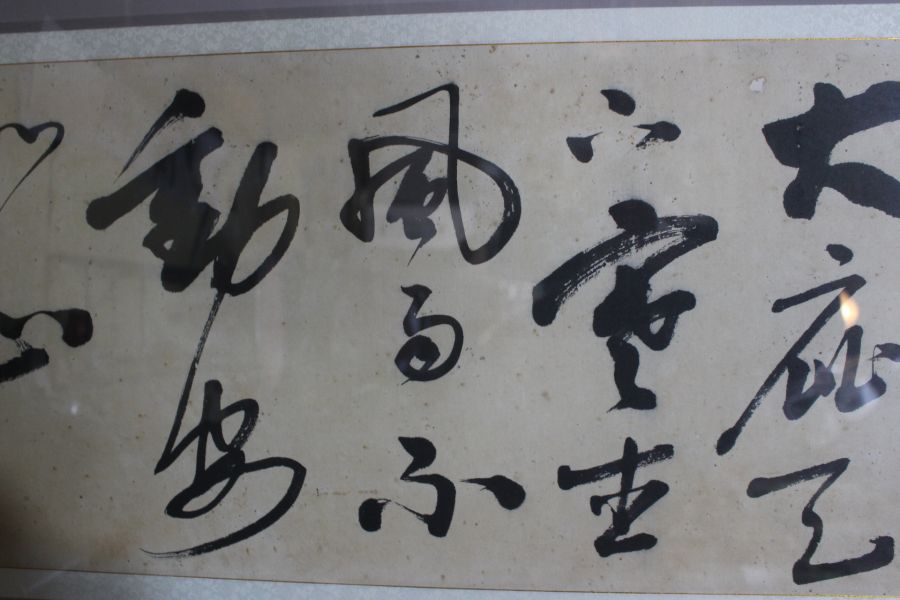 大庇天
下寒士
風雨不
動安